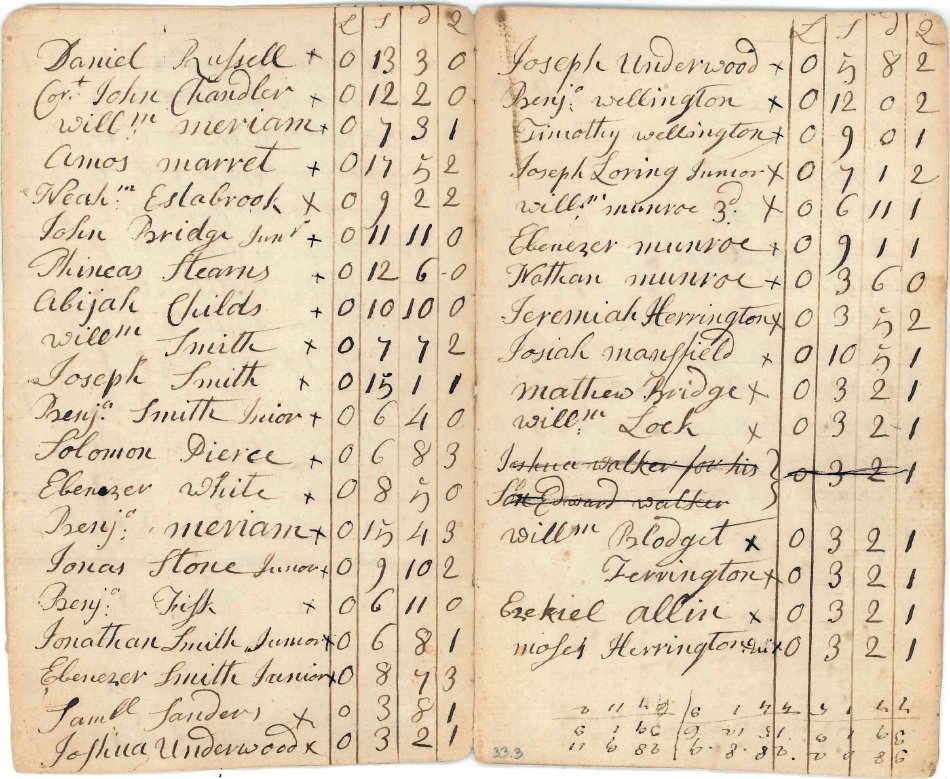 £ s d q
Daniel Russell x 0 13 3 0
Corᵗ John Chandler x 0 12 2 0
willᵐ meriam x 0 7 3 1
Amos marret x 0 17 5 2
Neahᵐ Estabrook x 0 9 2 2
John Bridge Junʳ x 0 11 11 0
Phineas Stearns x 0 12 6 0
Abijah Childs x 0 10 10 0
willᵐ Smith x 0 7 7 2
Joseph Smith x 0 15 1 1
Benjᵃ Smith Junior x 0 6 4 0
Solomon Pierce x 0 6 8 3
Ebenezer white x 0 8 5 0
Benjᵃ meriam x 0 15 4 3
Jonas Stone Junior x 0 9 10 2
Benjᵃ Fisk x 0 6 11 0
Jonathan Smith Junior x 0 6 8 1
Ebenezer Smith Junior x 0 8 7 3
Samˡˡ Sanders x 0 3 8 1
Joshua Underwood x 0 3 2 1
£ s d q
Joseph Underwood x 0 5 8 2
Benjᵃ wellington x 0 12 0 2
Timothy wellington x 0 9 0 1
Joseph Loring Junior x 0 7 1 2
willᵐ munroe 3ᵈ x 0 6 11 1
Ebenezer munroe x 0 9 1 1
Nathan munroe x 0 3 6 0
Jeremiah Herrington x 0 3 5 2
Josiah mansfield x 0 10 5 1
mathew Bridge x 0 3 2 1
willᵐ Lock x 0 3 2 1
Joshua walker for his 0 3 2 1
Son Edward walker
willᵐ Blodget x 0 3 2 1
Ferrington x 0 3 2 1
Ezekiel allin x 0 3 2 1
moses Herrington Jur x 0 3 2 1
33.3